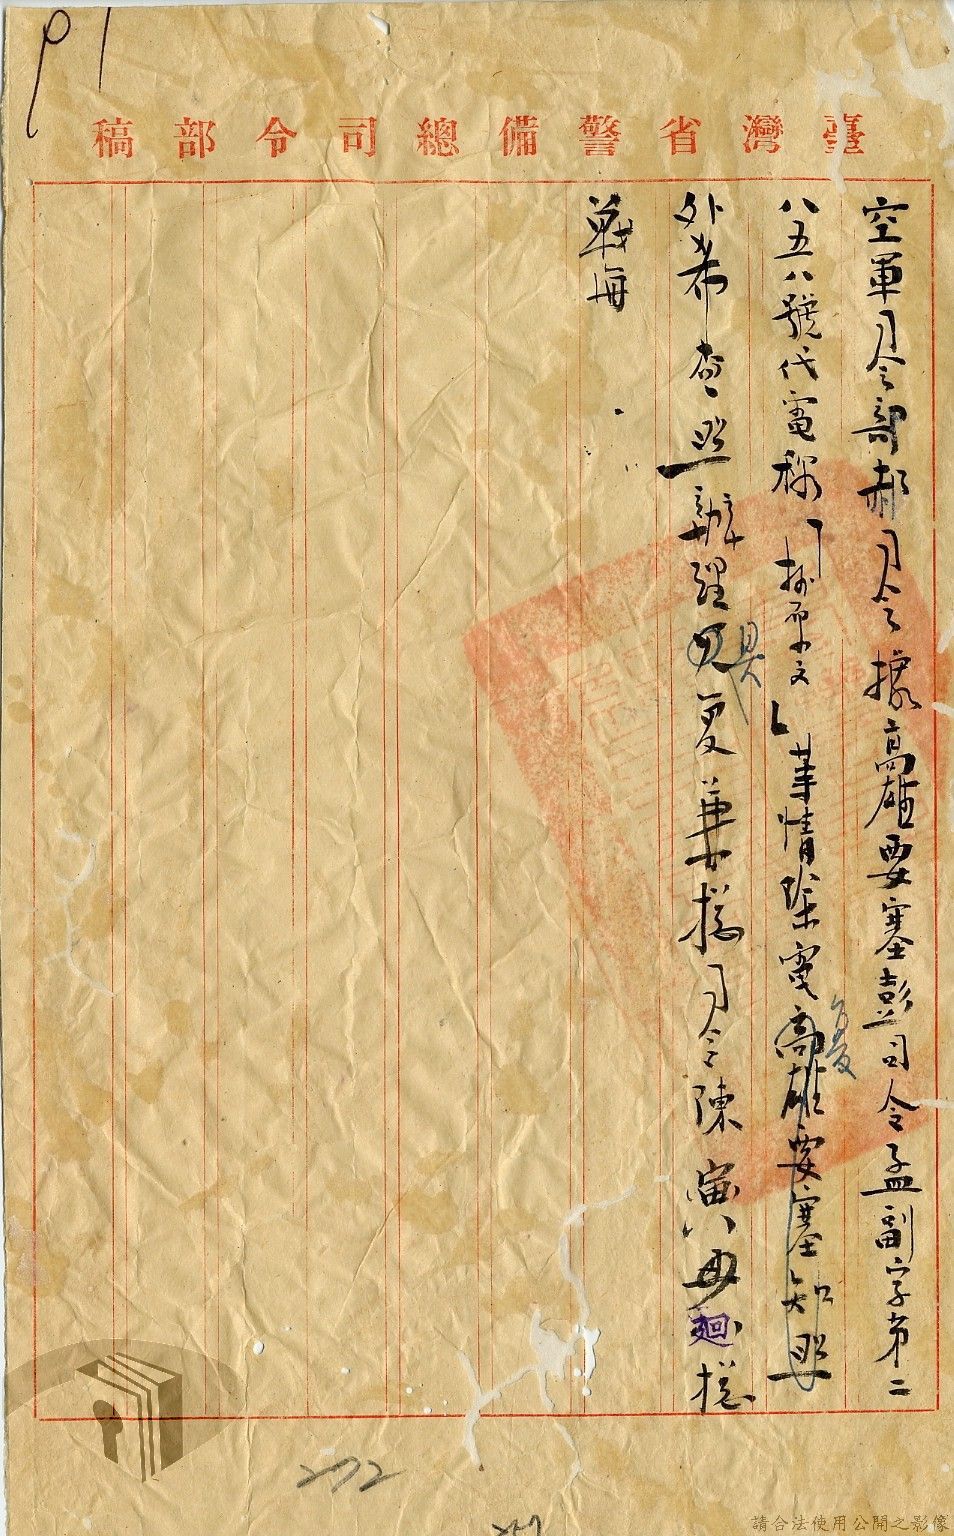 臺灣省警備總司令部稿
空軍司令部郝司令據高雄要塞彭司令孟副字第二
八五八號代電稱「抄原文」等情除電復高雄要塞知照
外希查照辦理見復兼總司令陳寅 廻總
戰海
272
請合法使用公開之影像